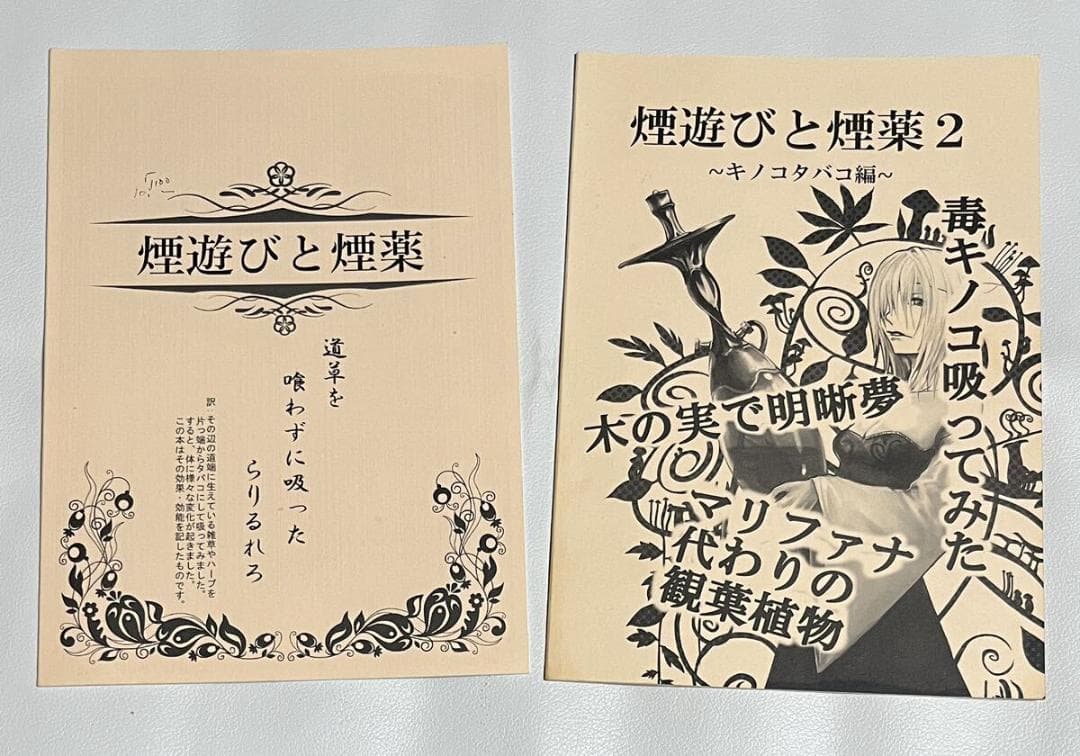 煙遊びと煙薬
道草を
喰わずに吸った
らりるれろ
訳・その辺の道端に生えている雑草やハーブを
片っ端からタバコにして吸ってみました。
すると、体に様々な変化が起きました。
この本はその効果・効能を記したものです。
煙遊びと煙薬2
~キノコタバコ編~
毒キノコ吸ってみた
木の実で明晰夢
マリファナ
代わりの
観葉植物